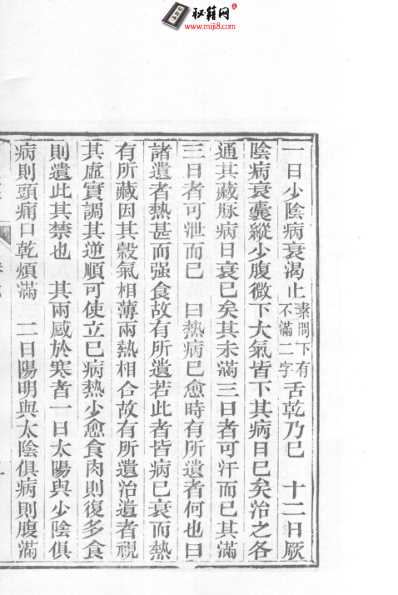 秘籍网
www.miji8.com
一日少陰病衰渴止素問下有不滿二字舌乾乃巳　十二日厥
陰病衰囊縱少腹微下大氣皆下其病日巳矣治之各
通其藏脉病日衰巳矣其未滿三日者可汗而巳其滿
三日者可泄而巳　曰熱病巳愈時有所遺者何也曰
諸遺者熱甚而强食故有所遺若此者皆病巳衰而熱
有所藏因其穀氣相薄兩熱相合故有所遺治遺者視
其虛實調其逆順可使立巳病熱少愈食肉則復多食
則遺此其禁也　其兩感於寒者一日太陽與少陰俱
病則頭痛口乾煩滿　二日陽明與太陰俱病則腹滿